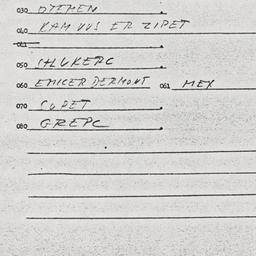 030 DTEMEN
040 KAM VVS ER ZIPET
041
050 SHLUKERC
060 EMICER DERMONT 061 MEX
070 SUPET
080 GREPC